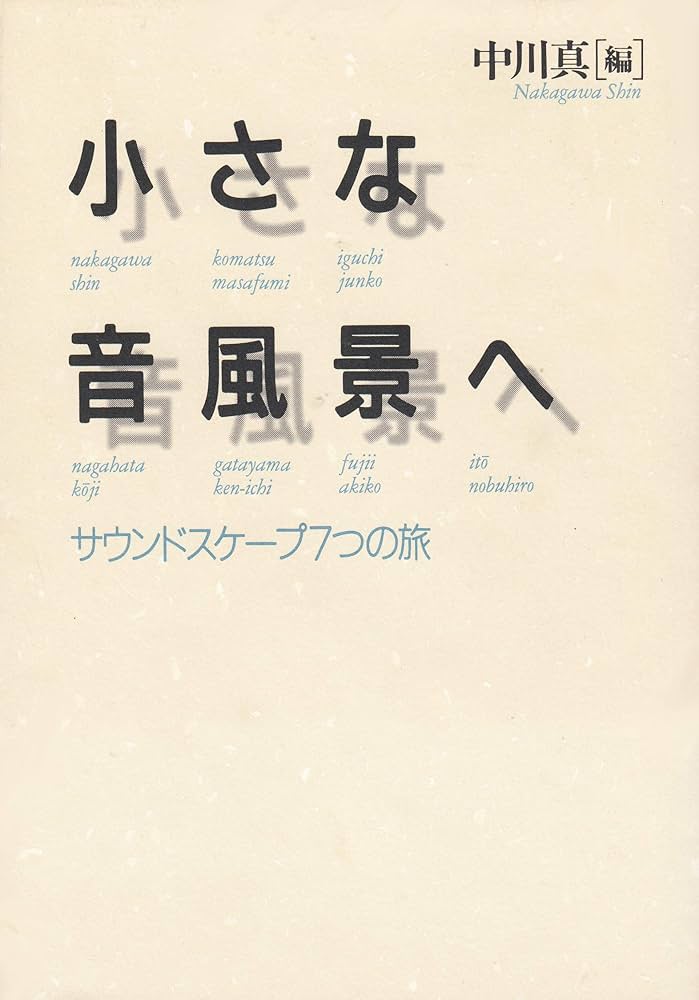 中川真[編]
Nakagawa Shin
小さな
nakagawa komatsu iguchi
shin masafumi junko
音風景へ
nagahata gatayama fujii itō
kōji ken-ichi akiko nobuhiro
サウンドスケープ7つの旅